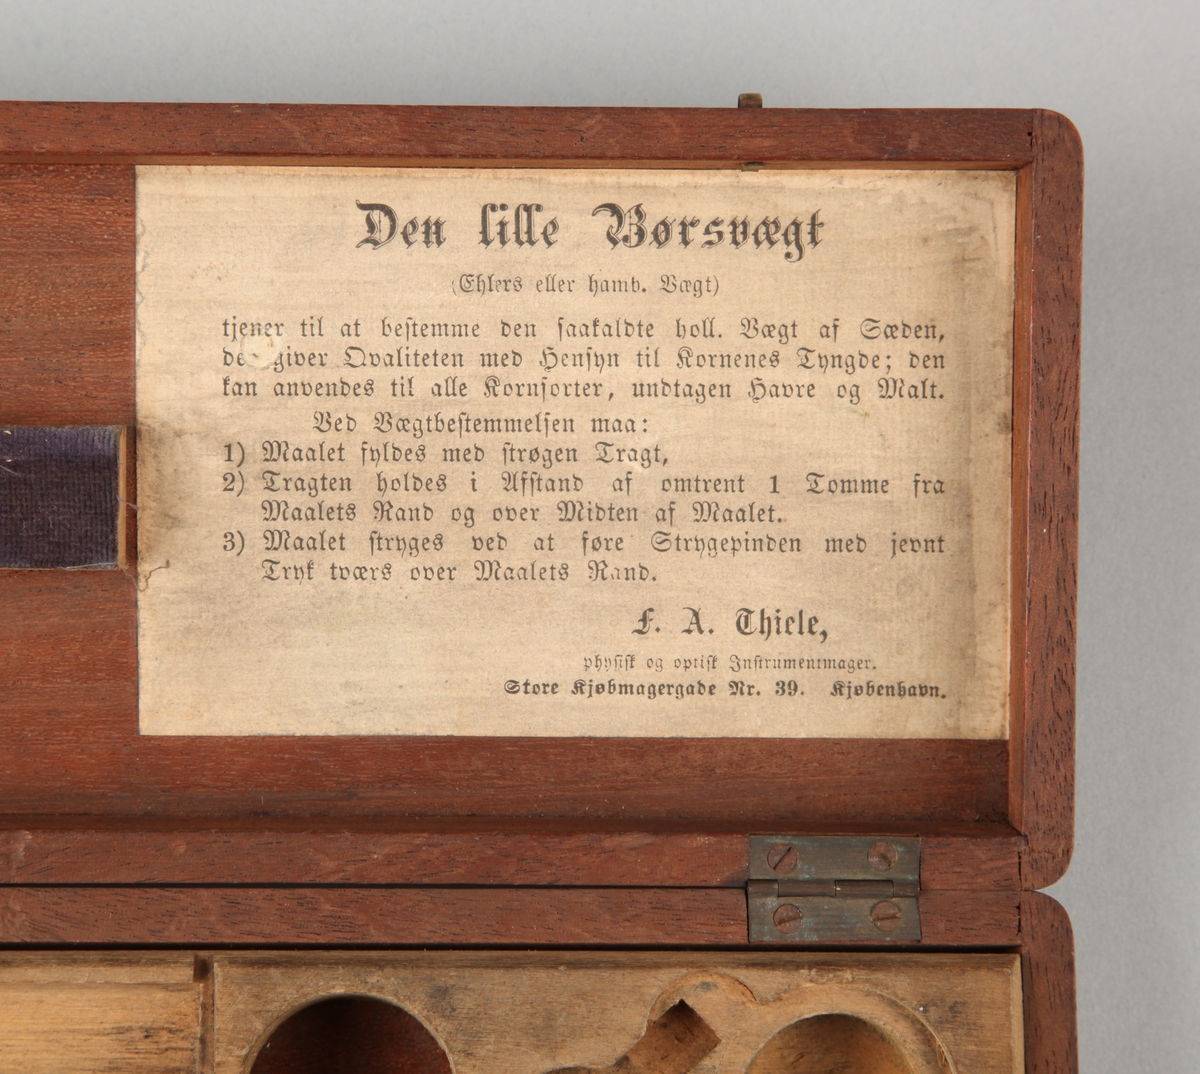 Den lille Børsvægt
(Ehlers eller hamb. Vægt)
tjener til at bestemme den saakaldte holl. Vægt af Sæden,
giver Qvaliteten med Hensyn til Kornenes Tyngde; den
kan anvendes til alle Kornsorter, undtagen Havre og Malt.
Ved Vægtbestemmelsen maa:
1) Maalet fyldes med strøgen Tragt,
2) Tragten holdes i Afstand af omtrent 1 Tomme fra
Maalets Rand og over Midten af Maalet.
3) Maalet stryges ved at føre Strygepinden med jevnt
Tryk tværs over Maalets Rand.
F. A. Thiele,
physisk og optisk Instrumentmager.
Store Kjøbmagergade Nr. 39. Kjøbenhavn.